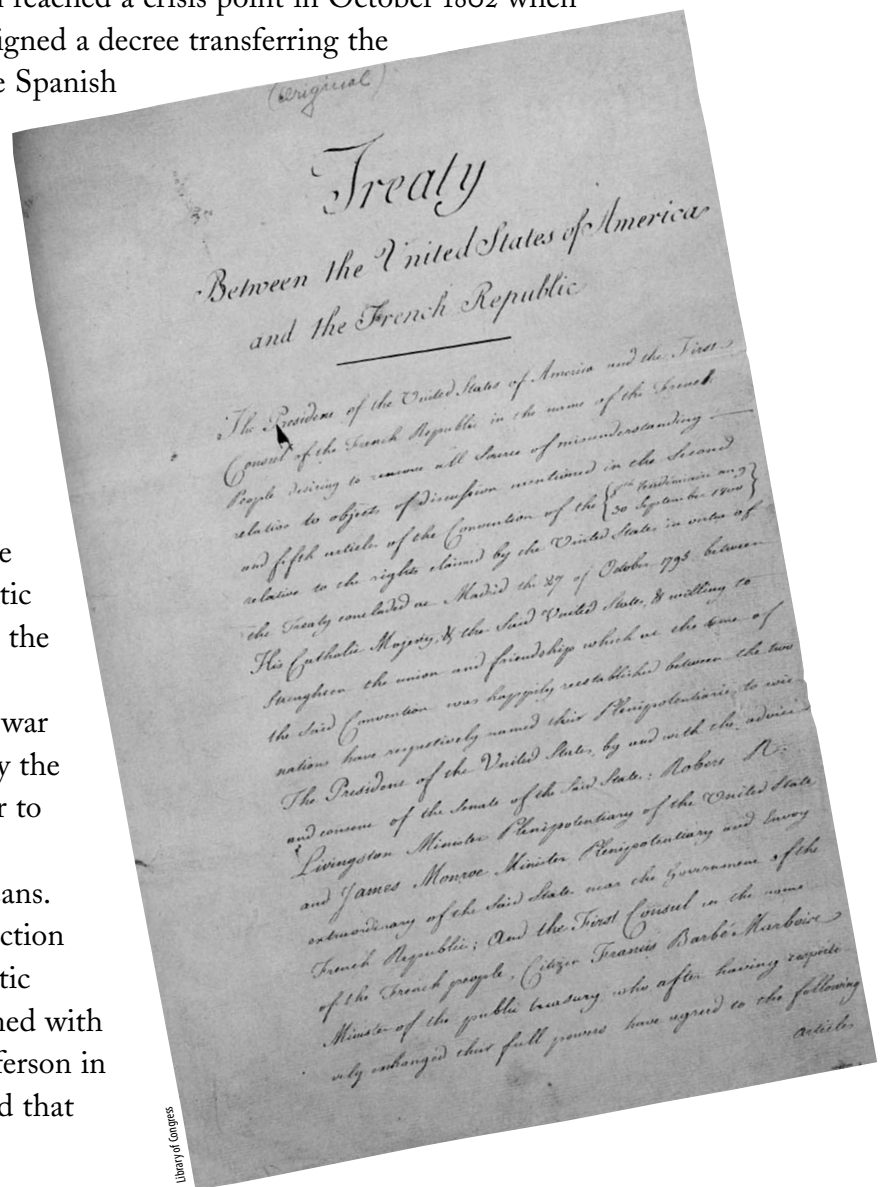 reached a crisis point in October 1802 when
igned a decree transferring the
e Spanish
(Original)
Treaty
Between the United States of America
and the French Republic
The President of the United States of America and the First
Consul of the French Republic in the name of the French
People desiring to remove all Source of misunderstanding
relative to objects of discussion mentioned in the Second
and fifth articles of the Convention of the {8th Vendémiaire an 9
30 September 1800}
relative to the rights claimed by the United States in virtue of
the Treaty concluded at Madrid the 27 of October 1795 between
His Catholic Majesty, & the Said United States, & willing to
Strengthen the union and friendship which at the time of
the Said Convention was happily reestablished between the two
nations have respectively named their Plenipotentiaries to wit
The President of the United States, by and with the advice
and consent of the Senate of the Said States; Robert R.
Livingston Minister Plenipotentiary of the United States
and James Monroe Minister Plenipotentiary and Envoy
extraordinary of the Said States near the Government of the
French Republic; And the First Consul in the name
of the French people, Citizen Francis Barbé Marbois
Minister of the public treasury who after having respecti-
vely exchanged their full powers have agreed to the following
articles
e
tic
the
war
y the
r to
ans.
ction
tic
ned with
ferson in
d that
Library of Congress